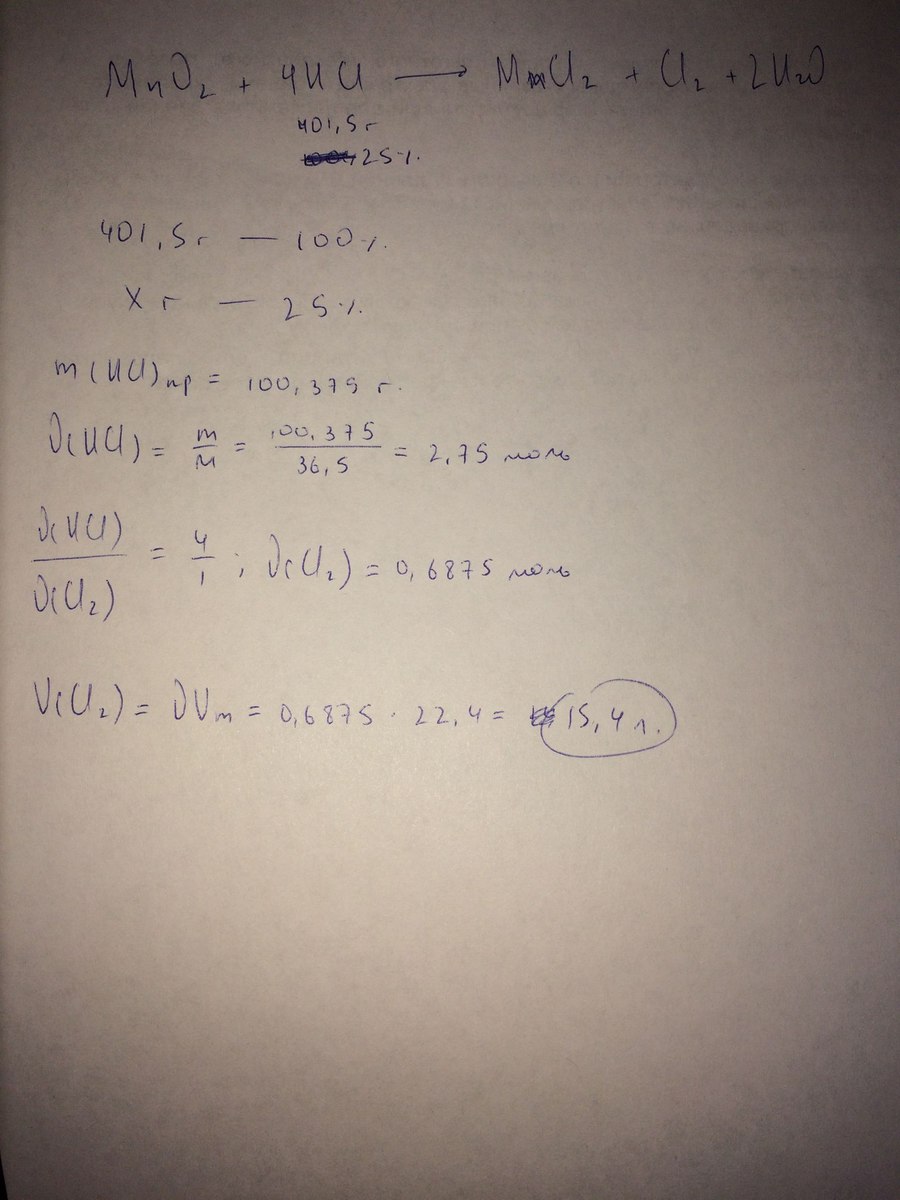 MnO₂ + 4HCl → MnCl₂ + Cl₂ + 2H₂O
401,5 г
25%.
401,5 г — 100%.
x г — 25%.
m(HCl)пр = 100,375 г.
ν(HCl) = m/M = 100,375/36,5 = 2,75 моль
ν(HCl)/ν(Cl₂) = 4/1; ν(Cl₂) = 0,6875 моль
V(Cl₂) = νVm = 0,6875 · 22,4 = 15,4 л.